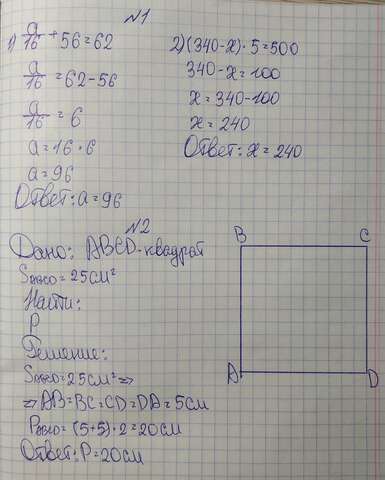 №1
1) a/16 + 56 = 62
a/16 = 62 - 56
a/16 = 6
a = 16 · 6
a = 96
Ответ: a = 96
2) (340 - x) · 5 = 500
340 - x = 100
x = 340 - 100
x = 240
Ответ: x = 240
№2
Дано: ABCD - квадрат
S_ABCD = 25 см²
Найти:
P
Решение:
S_ABCD = 25 см² =>
=> AB = BC = CD = DA = 5 см
P_ABCD = (5+5) · 2 = 20 см
Ответ: P = 20 см
B C
A D